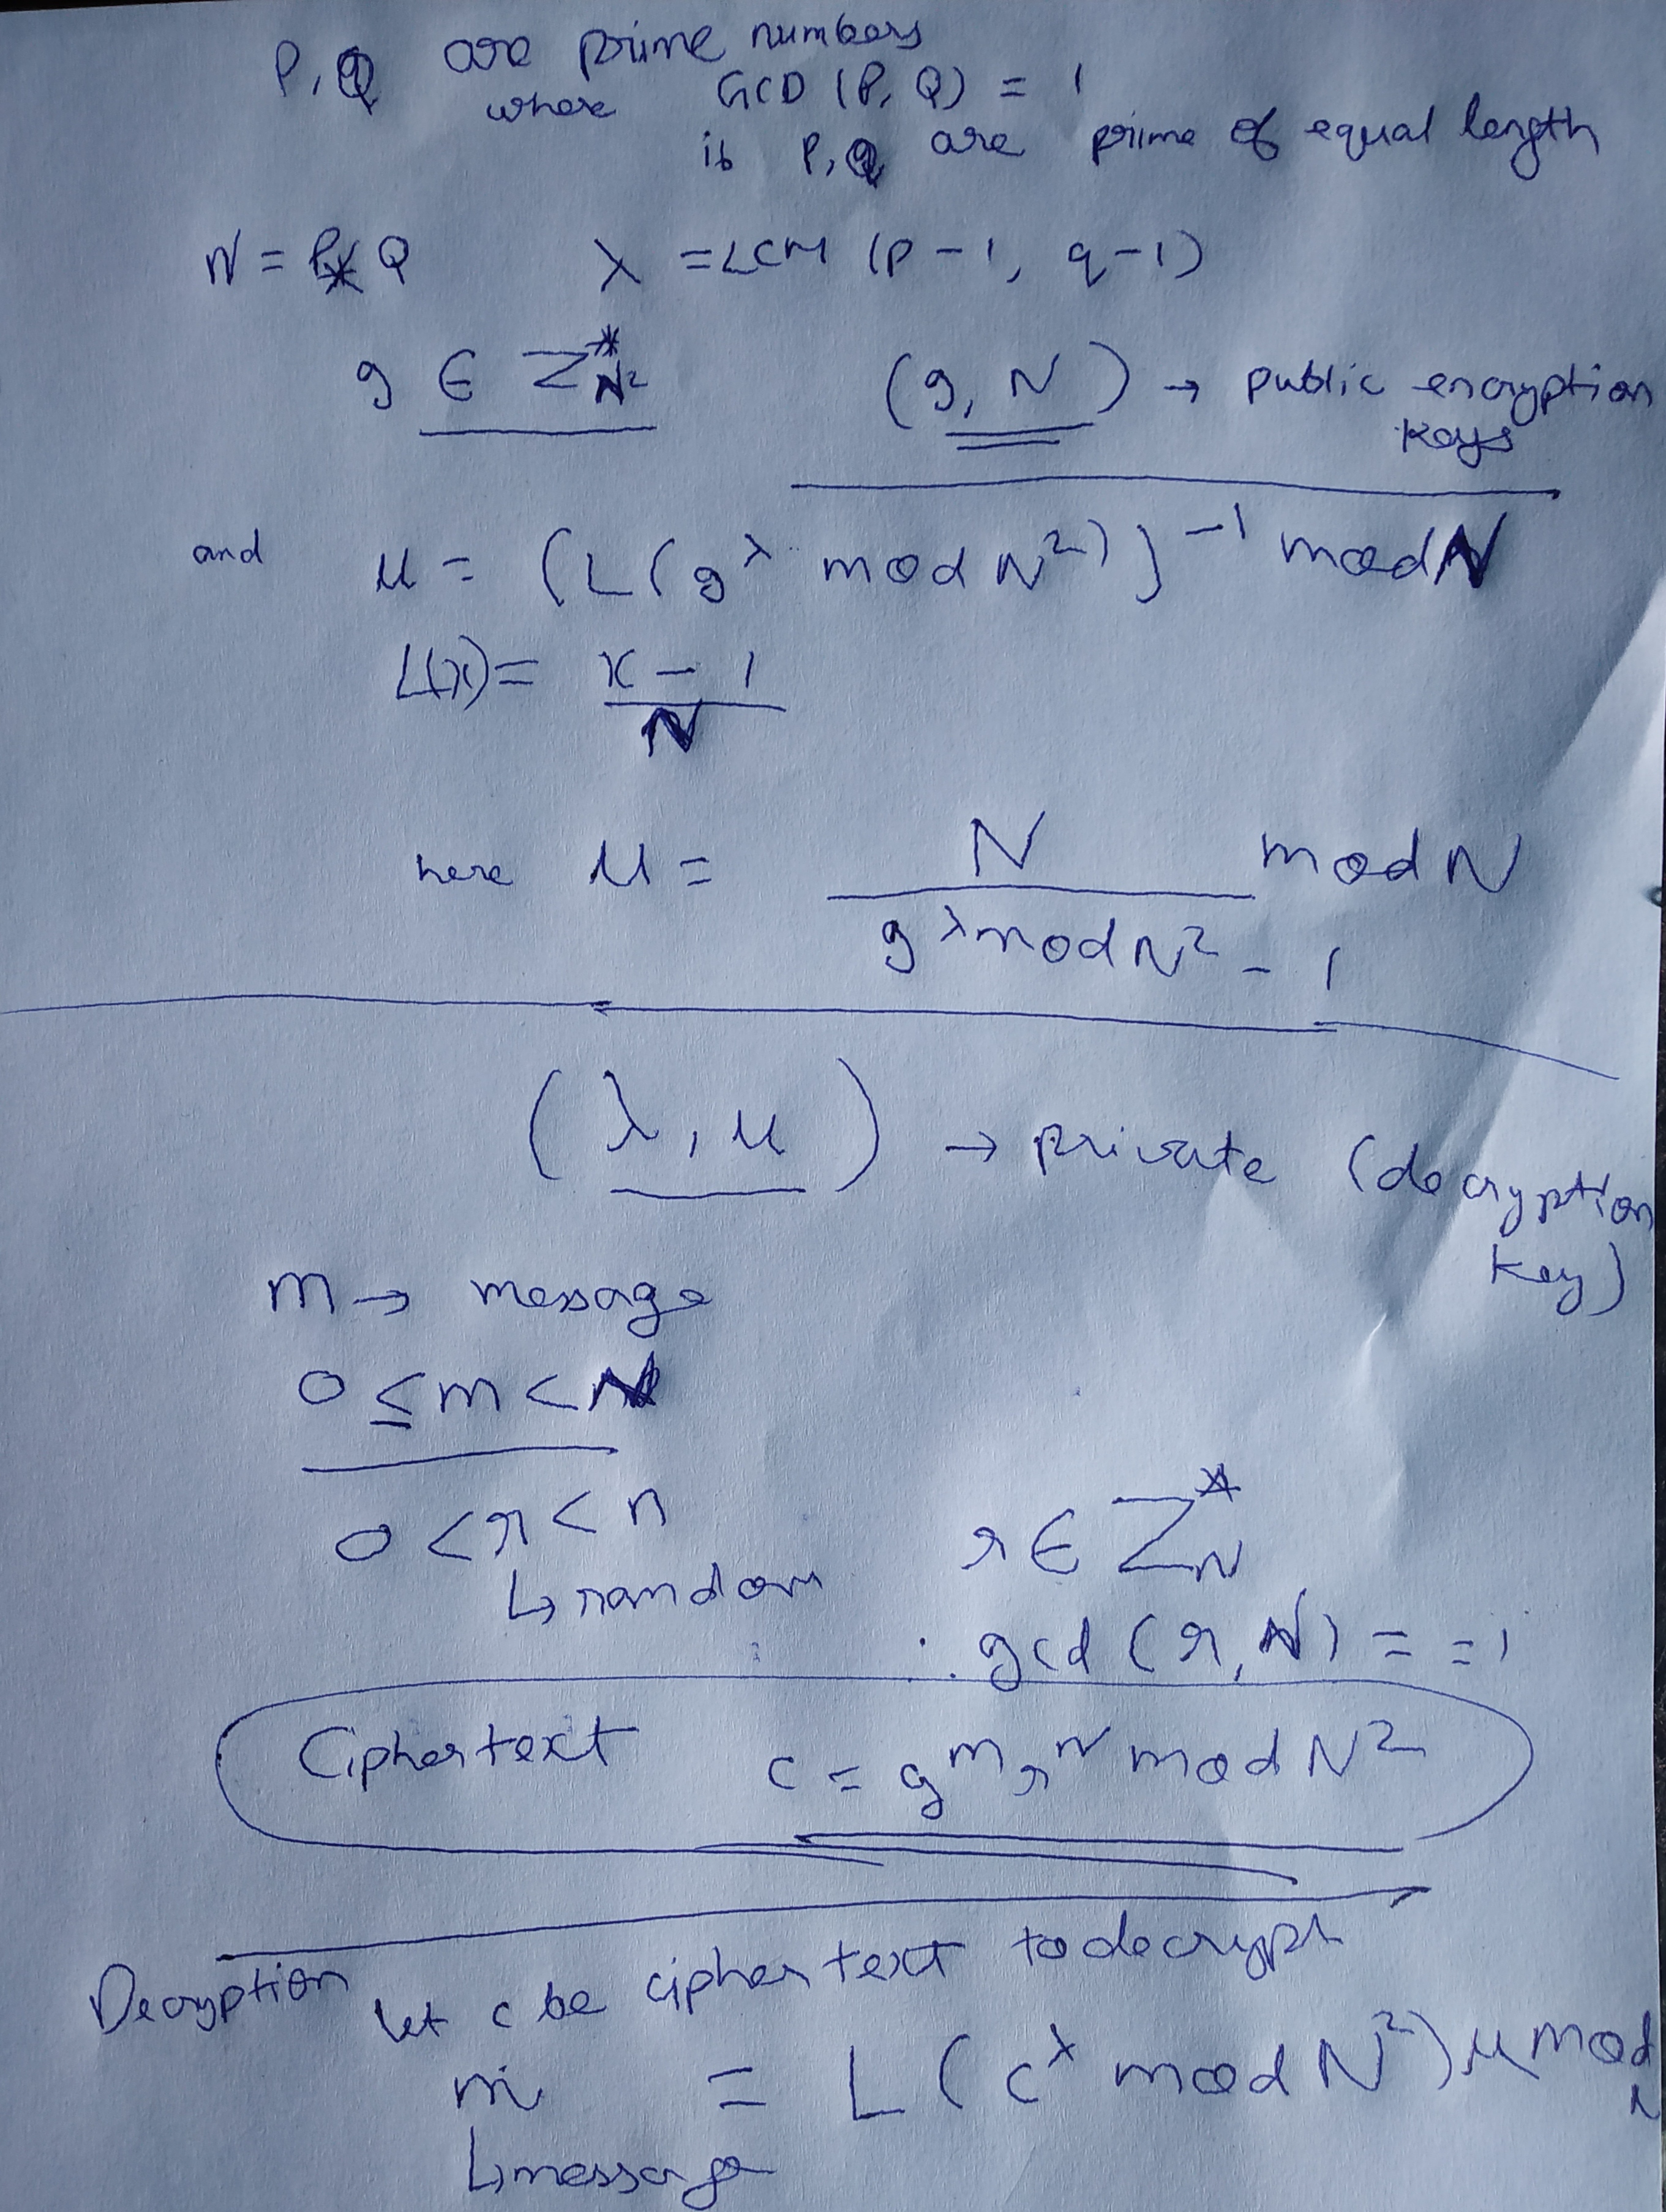 P, Q are prime numbers
where GCD (P, Q) = 1
if P, Q are prime of equal length
N = P * Q λ = LCM (p - 1, q - 1)
g ∈ Z*_N² (g, N) → public encryption
keys
and μ = (L(g^λ mod N²))^-1 mod N
L(x) = x - 1
N
here μ = N mod N
g^λ mod N² - 1
(λ, μ) → private (decryption
key)
m → message
0 ≤ m < N
0 < r < n r ∈ Z*_N
↳ random
∴ gcd (r, N) = = 1
Ciphertext c = g^m r^N mod N²
Decryption let c be cipher text to decrypt
m = L (c^λ mod N²) μ mod
N
↳ message